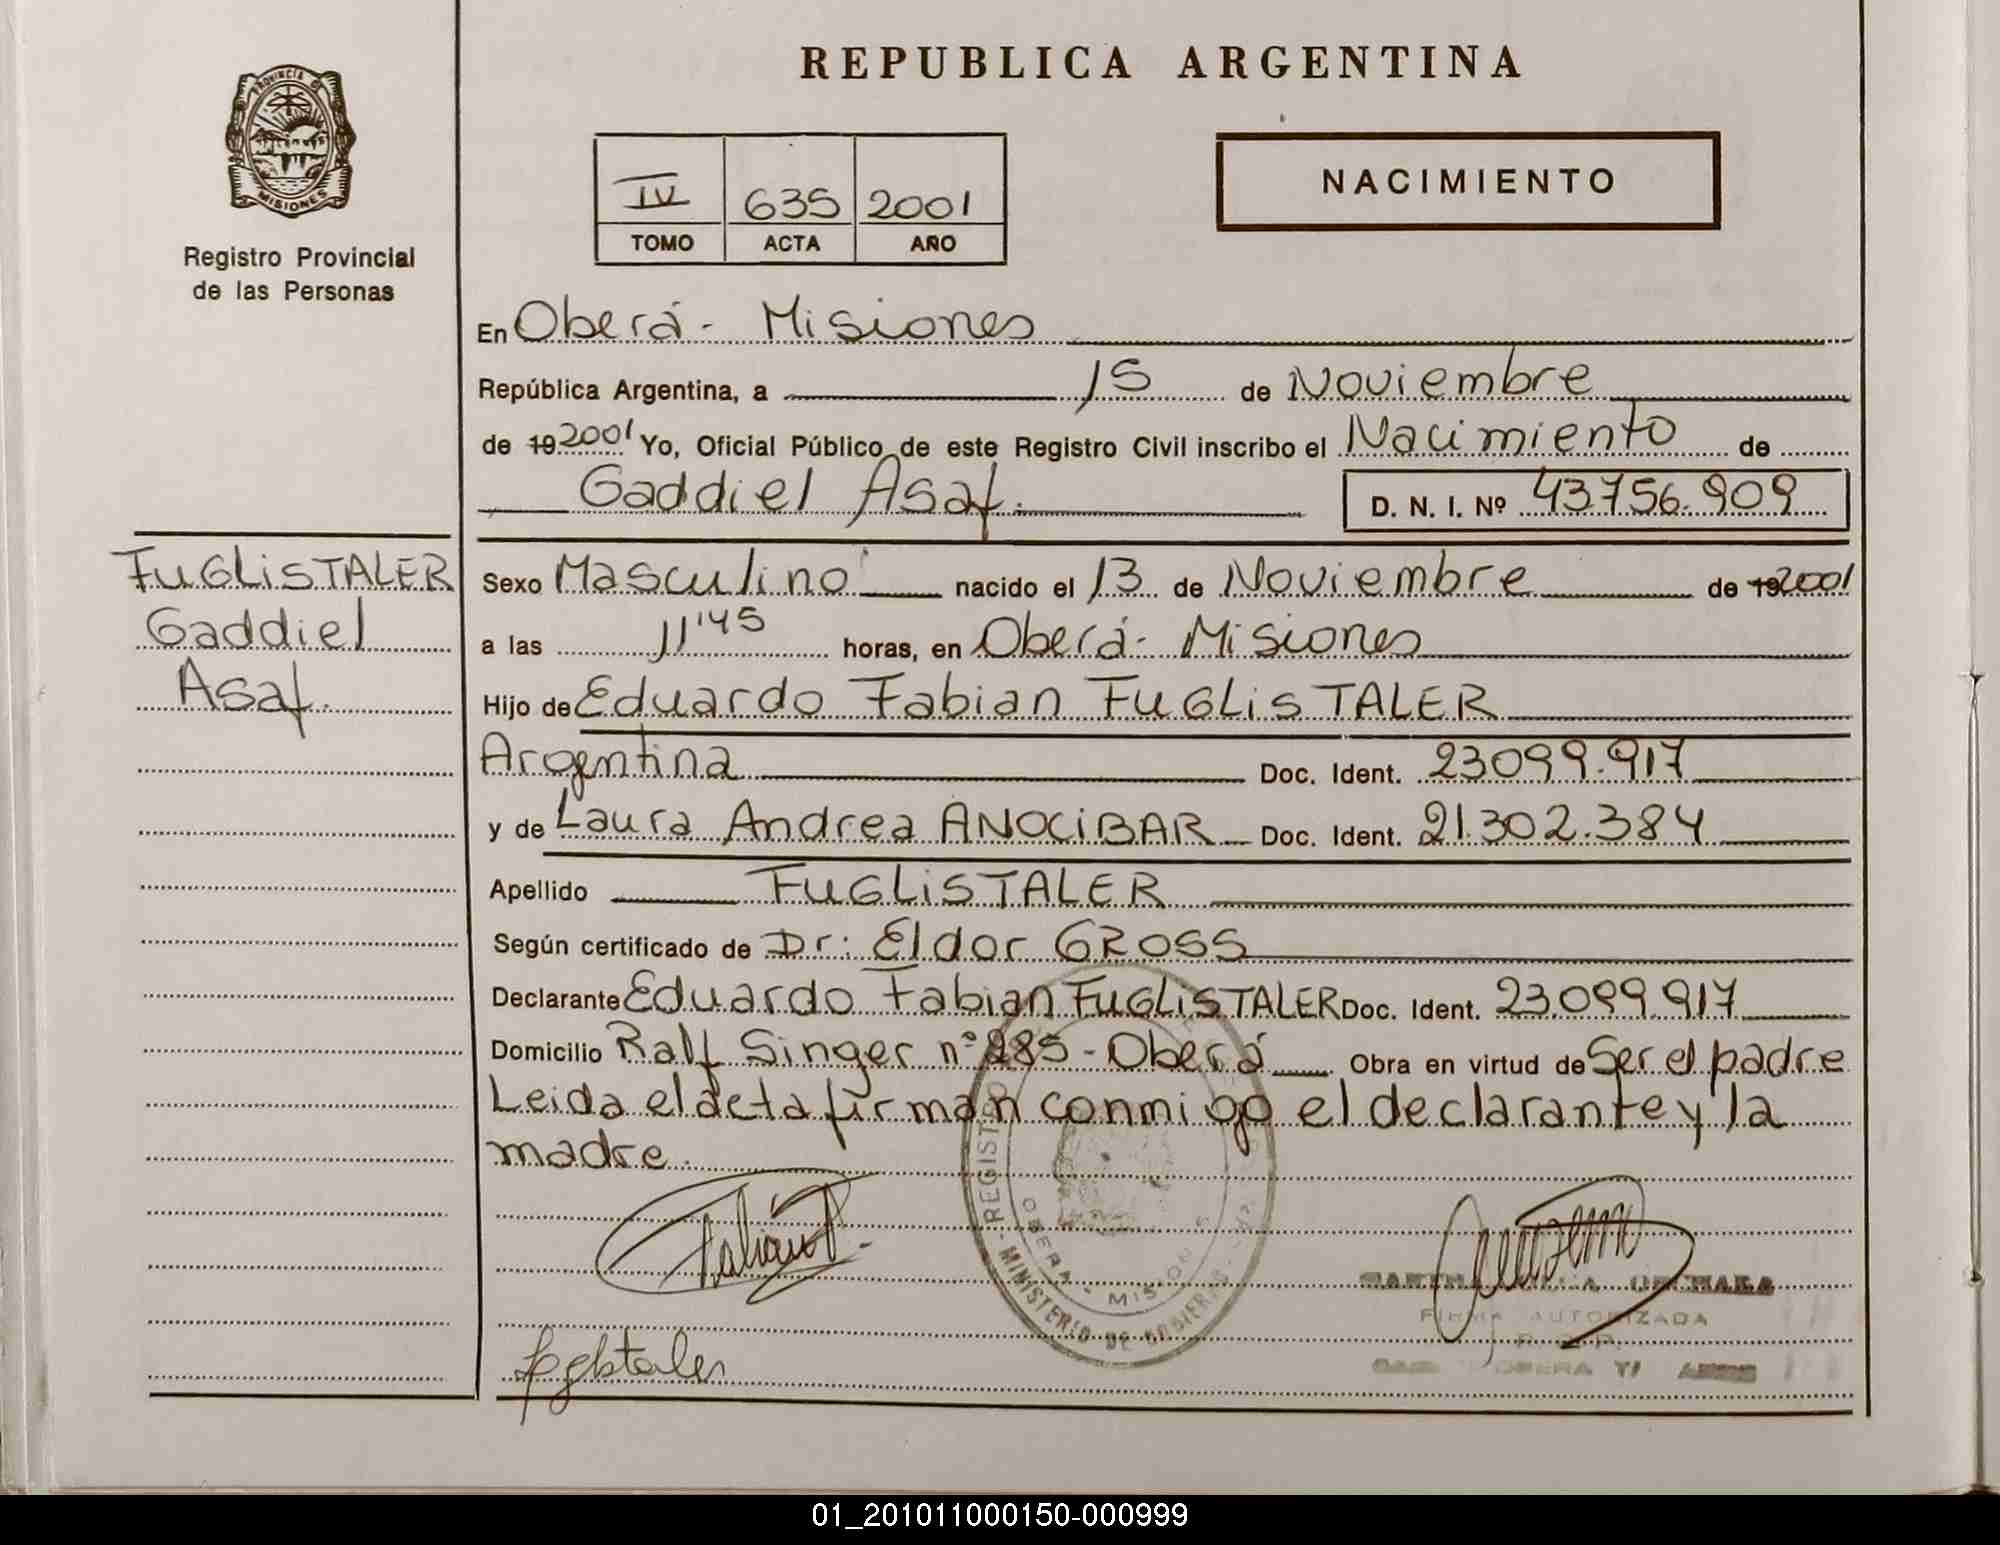 REPUBLICA ARGENTINA
PROVINCIA DE
MISIONES
Registro Provincial
de las Personas
IV 635 2001
TOMO ACTA AÑO
NACIMIENTO
En Oberá - Misiones
República Argentina, a 15 de Noviembre
de 19 2001 Yo, Oficial Público de este Registro Civil inscribo el Nacimiento de
Gaddiel Asaf. D. N. I. Nº 43.756.909
FUGLISTALER
Gaddiel
Asaf.
Sexo Masculino nacido el 13 de Noviembre de 19 2001
a las 11'45 horas, en Oberá - Misiones
Hijo de Eduardo Fabian FUGLISTALER
Argentina Doc. Ident. 23.099.917
y de Laura Andrea ANOCIBAR Doc. Ident. 21.302.384
Apellido FUGLISTALER
Según certificado de Dr: Eldor GROSS
Declarante Eduardo Fabian FUGLISTALER Doc. Ident. 23.099.917
Domicilio Ralf Singer nº 285 - Oberá Obra en virtud de Ser el padre
Leida el acta firman conmigo el declarante y la
madre.
REGISTRO
MINISTERIO DE GOBIERNO
OBERA - MISIONES
FIRMA AUTORIZADA
OBERA
01_201011000150-000999